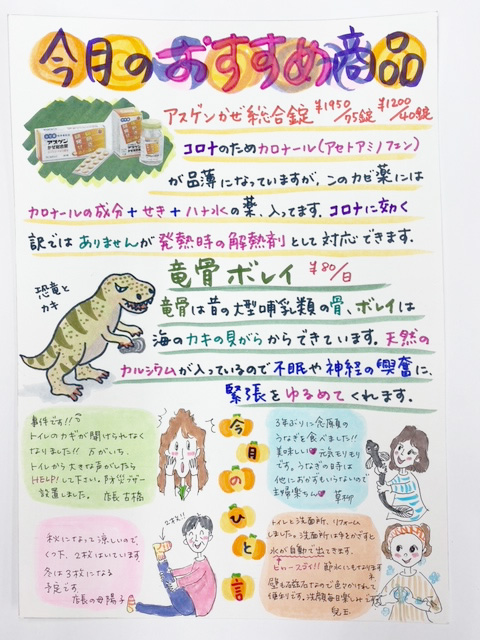 今月のおすすめ商品
アスゲンかぜ総合錠 ¥1950/75錠 ¥1200/40錠
アスゲン
コロナのためカロナール(アセトアミノフェン)
が品薄になっていますが、このカゼ薬には
カロナールの成分+せき+ハナ水の薬、入ってます。コロナに効く
訳ではありませんが発熱時の解熱剤として対応できます。
竜骨ボレイ ¥80/日
恐竜と
カキ
竜骨は昔の大型哺乳類の骨、ボレイは
海のカキの貝がらからできています。天然の
カルシウムが入っているので不眠や神経の興奮に、
緊張をゆるめてくれます。
今月のひと言
事件です!!
トイレのカギが開けられなく
なりました!! 万がいち、
トイレから大きな声がしたら
HELP!して下さい。防災ブザー
設置しました。 店長 古橋
3年ぶりに念願の
うなぎを食べました!!
美味しい♡元気モリモリ
です。うなぎの時は
他におかずもいらないので
主婦楽ちん♡ 草柳
秋になって涼しいので、
くつ下、2枚はいています。
冬は3枚になる
予定です。
店長の母 陽子
2才!!
トイレと洗面所、リフォーム
しました。洗面所は手をかざすと
水が自動で出てきます。
節水にもなります